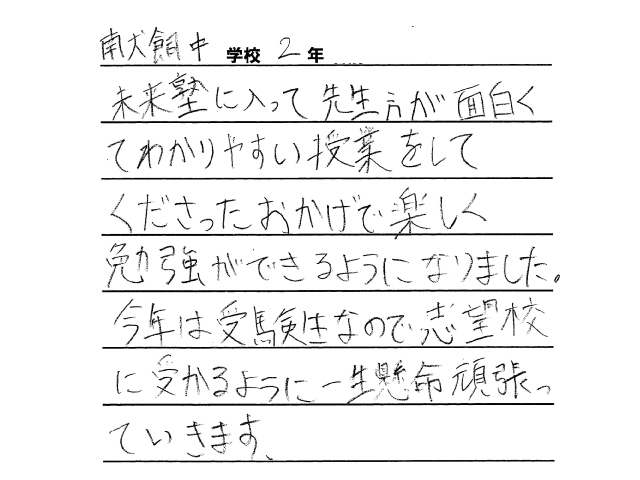 南犬飼中 学校 2 年
未来塾に入って先生方が面白く
てわかりやすい授業をして
くださったおかげで楽しく
勉強ができるようになりました。
今年は受験生なので志望校
に受かるように一生懸命頑張っ
ていきます、